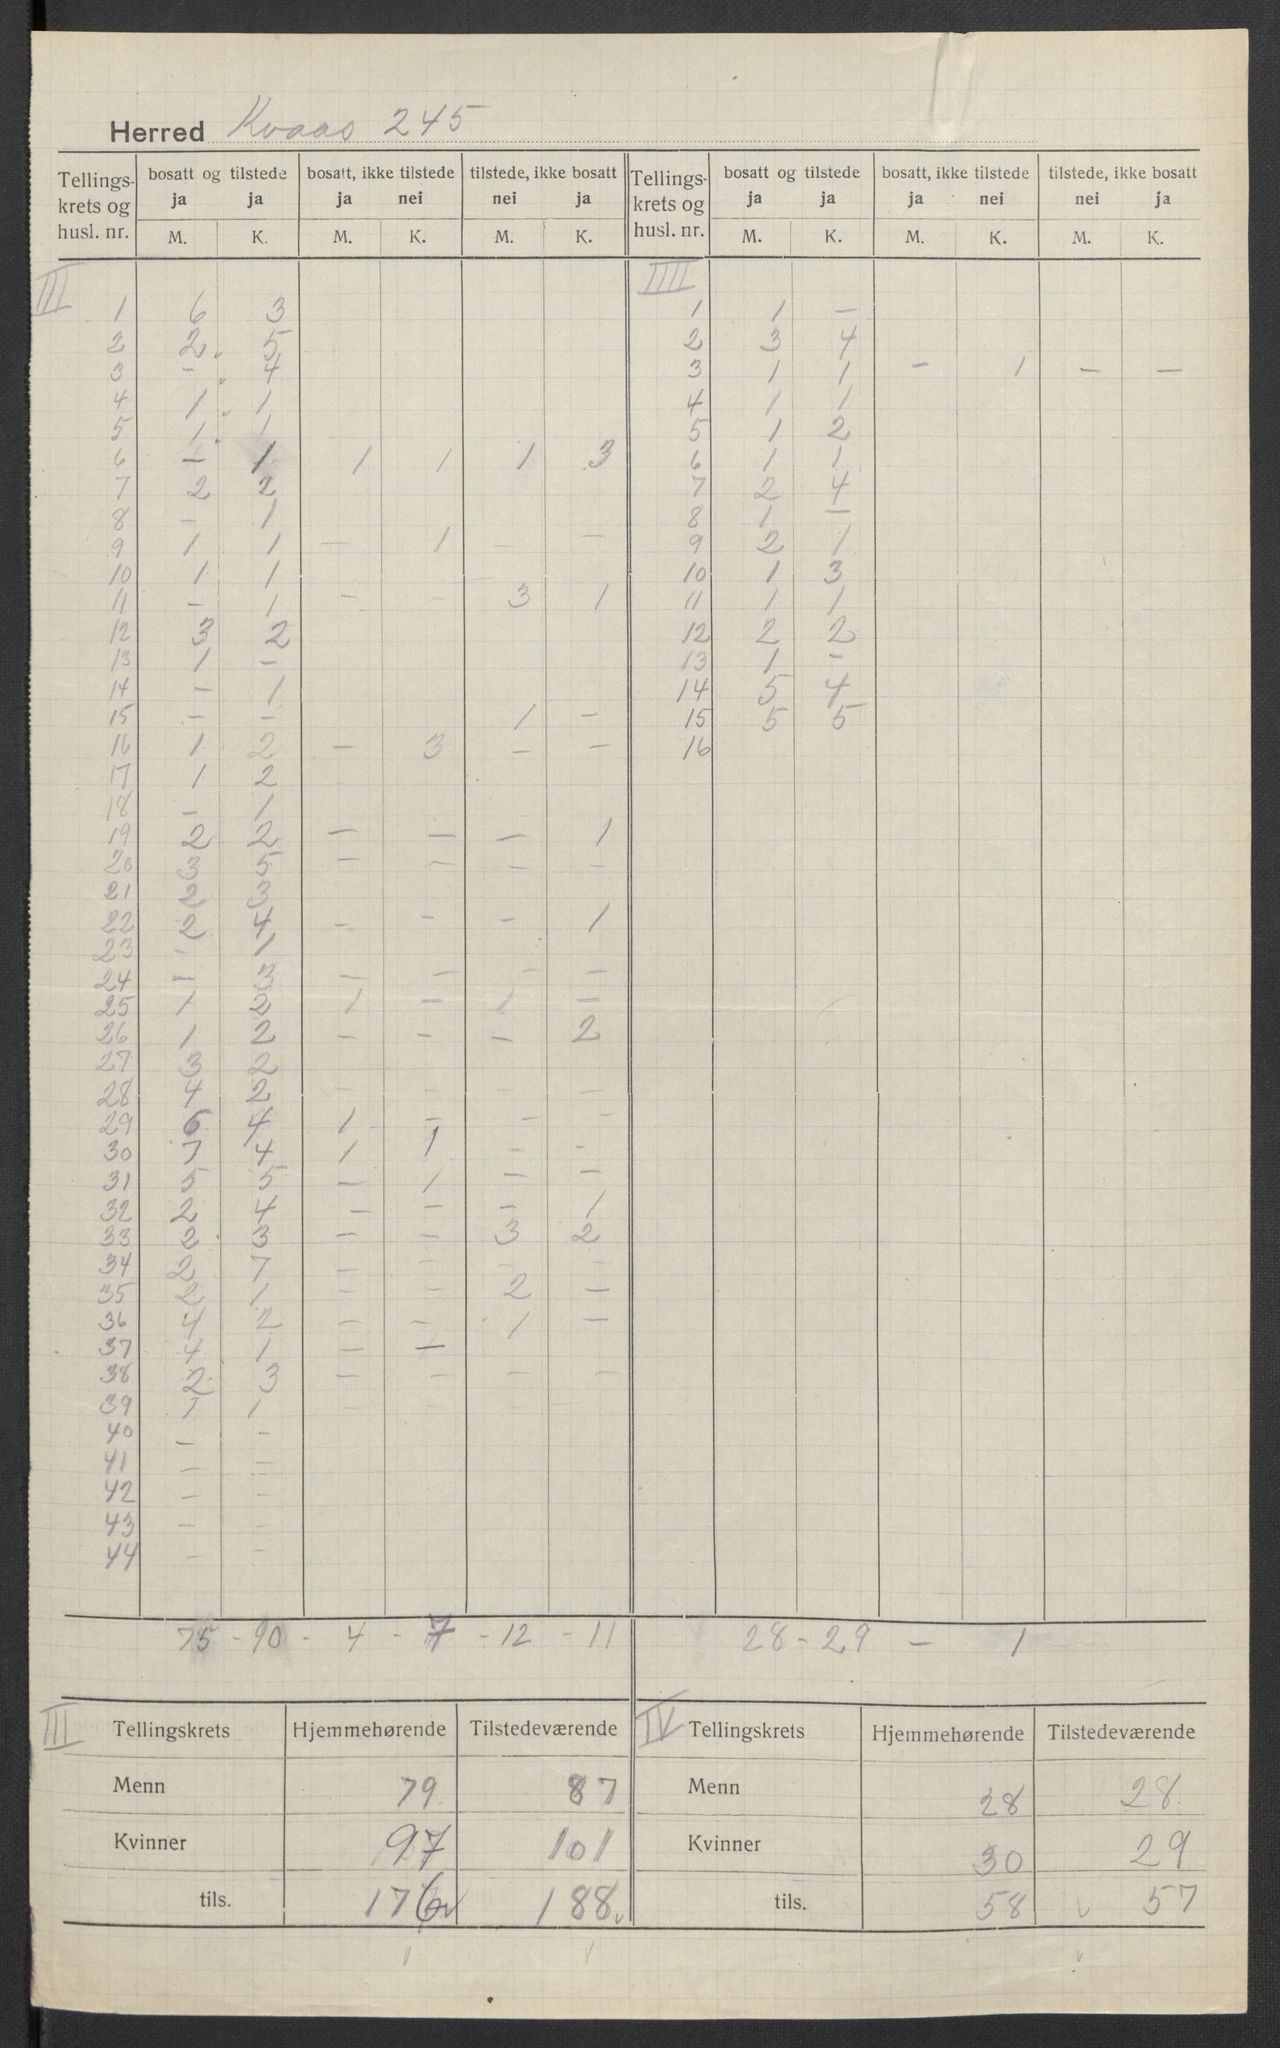 Herred Kvaas 245
Tellings- krets og husl. nr. | bosatt og tilstede ja ja M. K. | bosatt, ikke tilstede ja nei M. K. | tilstede, ikke bosatt nei ja M. K. | Tellings- krets og husl. nr. | bosatt og tilstede ja ja M. K. | bosatt, ikke tilstede ja nei M. K. | tilstede, ikke bosatt nei ja M. K.
III
1 6 3
2 2 5
3 - 4
4 1 1
5 1 1
6 - 1 1 1 1 3
7 2 2
8 - 1
9 1 1 - 1 - -
10 1 1
11 - 1 - - 3 1
12 3 2
13 1 -
14 - 1
15 - - 1 -
16 1 2 - 3 - -
17 1 2
18 - 1
19 2 2 - - - 1
20 3 5 - - - -
21 2 3
22 2 4 - - - 1
23 - 1
24 - 3 - - - -
25 1 2 1 - 1 -
26 1 2 - - - 2
27 3 2
28 4 2 - - - -
29 6 4 1 - - -
30 7 4 1 1 - -
31 5 5 - 1 - -
32 2 4 - - - 1
33 2 3 - - 3 2
34 2 7 - - - -
35 2 1 - - 2 -
36 4 2 - - 1 -
37 4 1 - -
38 2 3 - - - -
39 1 1 - -
40 - -
41 - -
42 - -
43 - -
44 - -
75 - 90 - 4 - 7 - 12 - 11
IIII
1 1 -
2 3 4
3 1 1 - 1 - -
4 1 1
5 1 2
6 1 1
7 2 4
8 1 -
9 2 1
10 1 3
11 1 1
12 2 2
13 1 -
14 5 4
15 5 5
16
28 - 29 - 1
III Tellingskrets Hjemmehørende Tilstedeværende
Menn 79 87
Kvinner 97 101
tils. 176 188
IV Tellingskrets Hjemmehørende Tilstedeværende
Menn 28 28
Kvinner 30 29
tils. 58 57